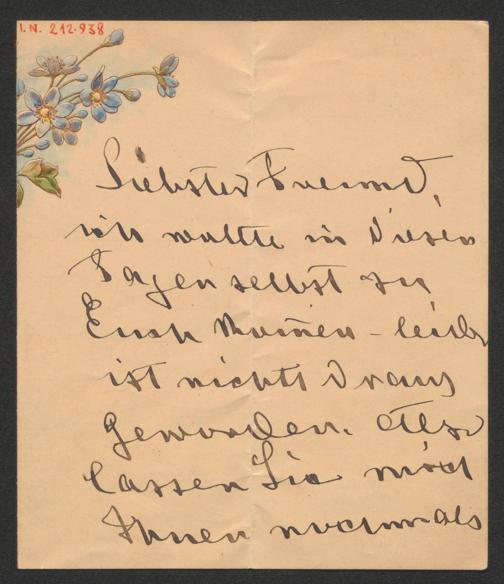 I.N. 212.938
Liebster Freund,
ich wollte in diesen
Tagen selbst zu
Euch kommen – leider
ist nichts draus
geworden. Also
lassen Sie mich
Ihnen nochmals